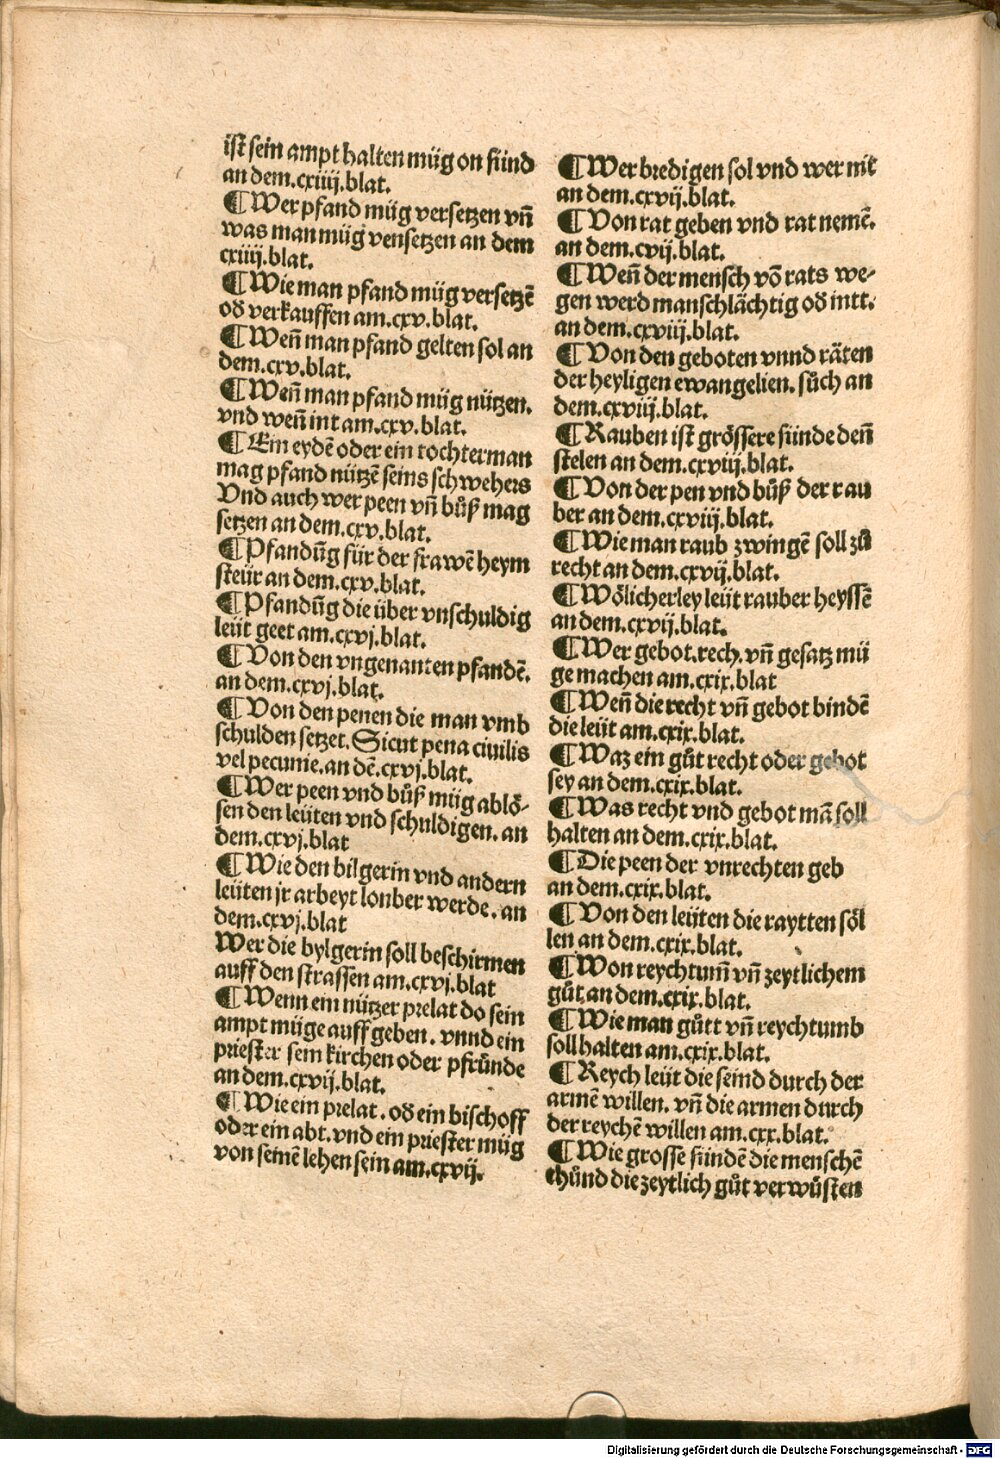 ist sein ampt halten müg on sünd
an dem.cxiiij.blat.
¶ Wer pfand müg versetzen vn̄
was man müg vensetzen an dem
cxiiij.blat.
¶ Wie man pfand müg versetzē
od verkauffen am.cxv.blat.
¶ Wen̄ man pfand gelten sol an
dem.cxv.blat.
¶ Wen̄ man pfand müg nützen.
vnd wen̄ int am.cxv.blat.
¶ Ein eydē oder ein tochterman
mag pfand nützē seins schwehers
Vnd auch wer peen vn̄ bůß mag
setzen an dem.cxv.blat.
¶ Pfandūg für der frawē heym
steür an dem.cxv.blat.
¶ Pfandūg die über vnschuldig
leüt geet am.cxvj.blat.
¶ Von den vngenanten pfandē.
an dem.cxvj.blat.
¶ Von den penen die man vmb
schulden setzet. Sicut pena ciuilis
vel pecunie.an dē.cxvj.blat.
¶ Wer peen vnd bůß müg ablö⸗
sen den leüten vnd schuldigen. an
dem.cxvj.blat
¶ Wie den bilgerin vnd andern
leüten jr arbeyt lonber werde. an
dem.cxvj.blat
Wer die bylgerin soll beschirmen
auff den strassen am.cxvj.blat
¶ Wenn ein nützer prelat do sein
ampt müge auff geben. vnnd ein
priester sein kirchen oder pfründe
an dem.cxvij.blat.
¶ Wie ein prelat. od ein bischoff
oder ein abt. vnd ein priester müg
von seinē lehen sein am.cxvij.
¶ Wer bredigen sol vnd wer nit
an dem.cxvij.blat.
¶ Von rat geben vnd rat nemē.
an dem.cvij.blat.
¶ Wen̄ der mensch vō rats we⸗
gen werd manschlächtig od intt.
an dem.cxviij.blat.
¶ Von den geboten vnnd räten
der heyligen ewangelien. sůch an
dem.cxviij.blat.
¶ Rauben ist grössere sünde den̄
stelen an dem.cxviij.blat.
¶ Von der pen vnd bůß der rau
ber an dem.cxviij.blat.
¶ Wie man raub zwingē soll zů
recht an dem.cxvij.blat.
¶ Wölicherley leüt rauber heyssē
an dem.cxvij.blat.
¶ Wer gebot.rech.vn̄ gesatz mü
ge machen am.cxix.blat
¶ Wen̄ die recht vn̄ gebot bindē
die leüt am.cxix.blat.
¶ Waz ein gůt recht oder gebot
sey an dem.cxix.blat.
¶ Was recht vnd gebot mā soll
halten an dem.cxix.blat.
¶ Die peen der vnrechten geb
an dem.cxix.blat.
¶ Von den leüten die raytten söl
len an dem.cxix.blat.
¶ Won reychtum̄ vn̄ zeytlichem
gůt an dem.cxix.blat.
¶ Wie man gůtt vn̄ reychtumb
soll halten am.cxix.blat.
¶ Reych leüt die seind durch der
armē willen. vn̄ die armen durch
der reychē willen am.cxx.blat.
¶ Wie grosse sündē die menschē
thůnd die zeytlich gůt verwůsten
Digitalisierung gefördert durch die Deutsche Forschungsgemeinschaft - DFG